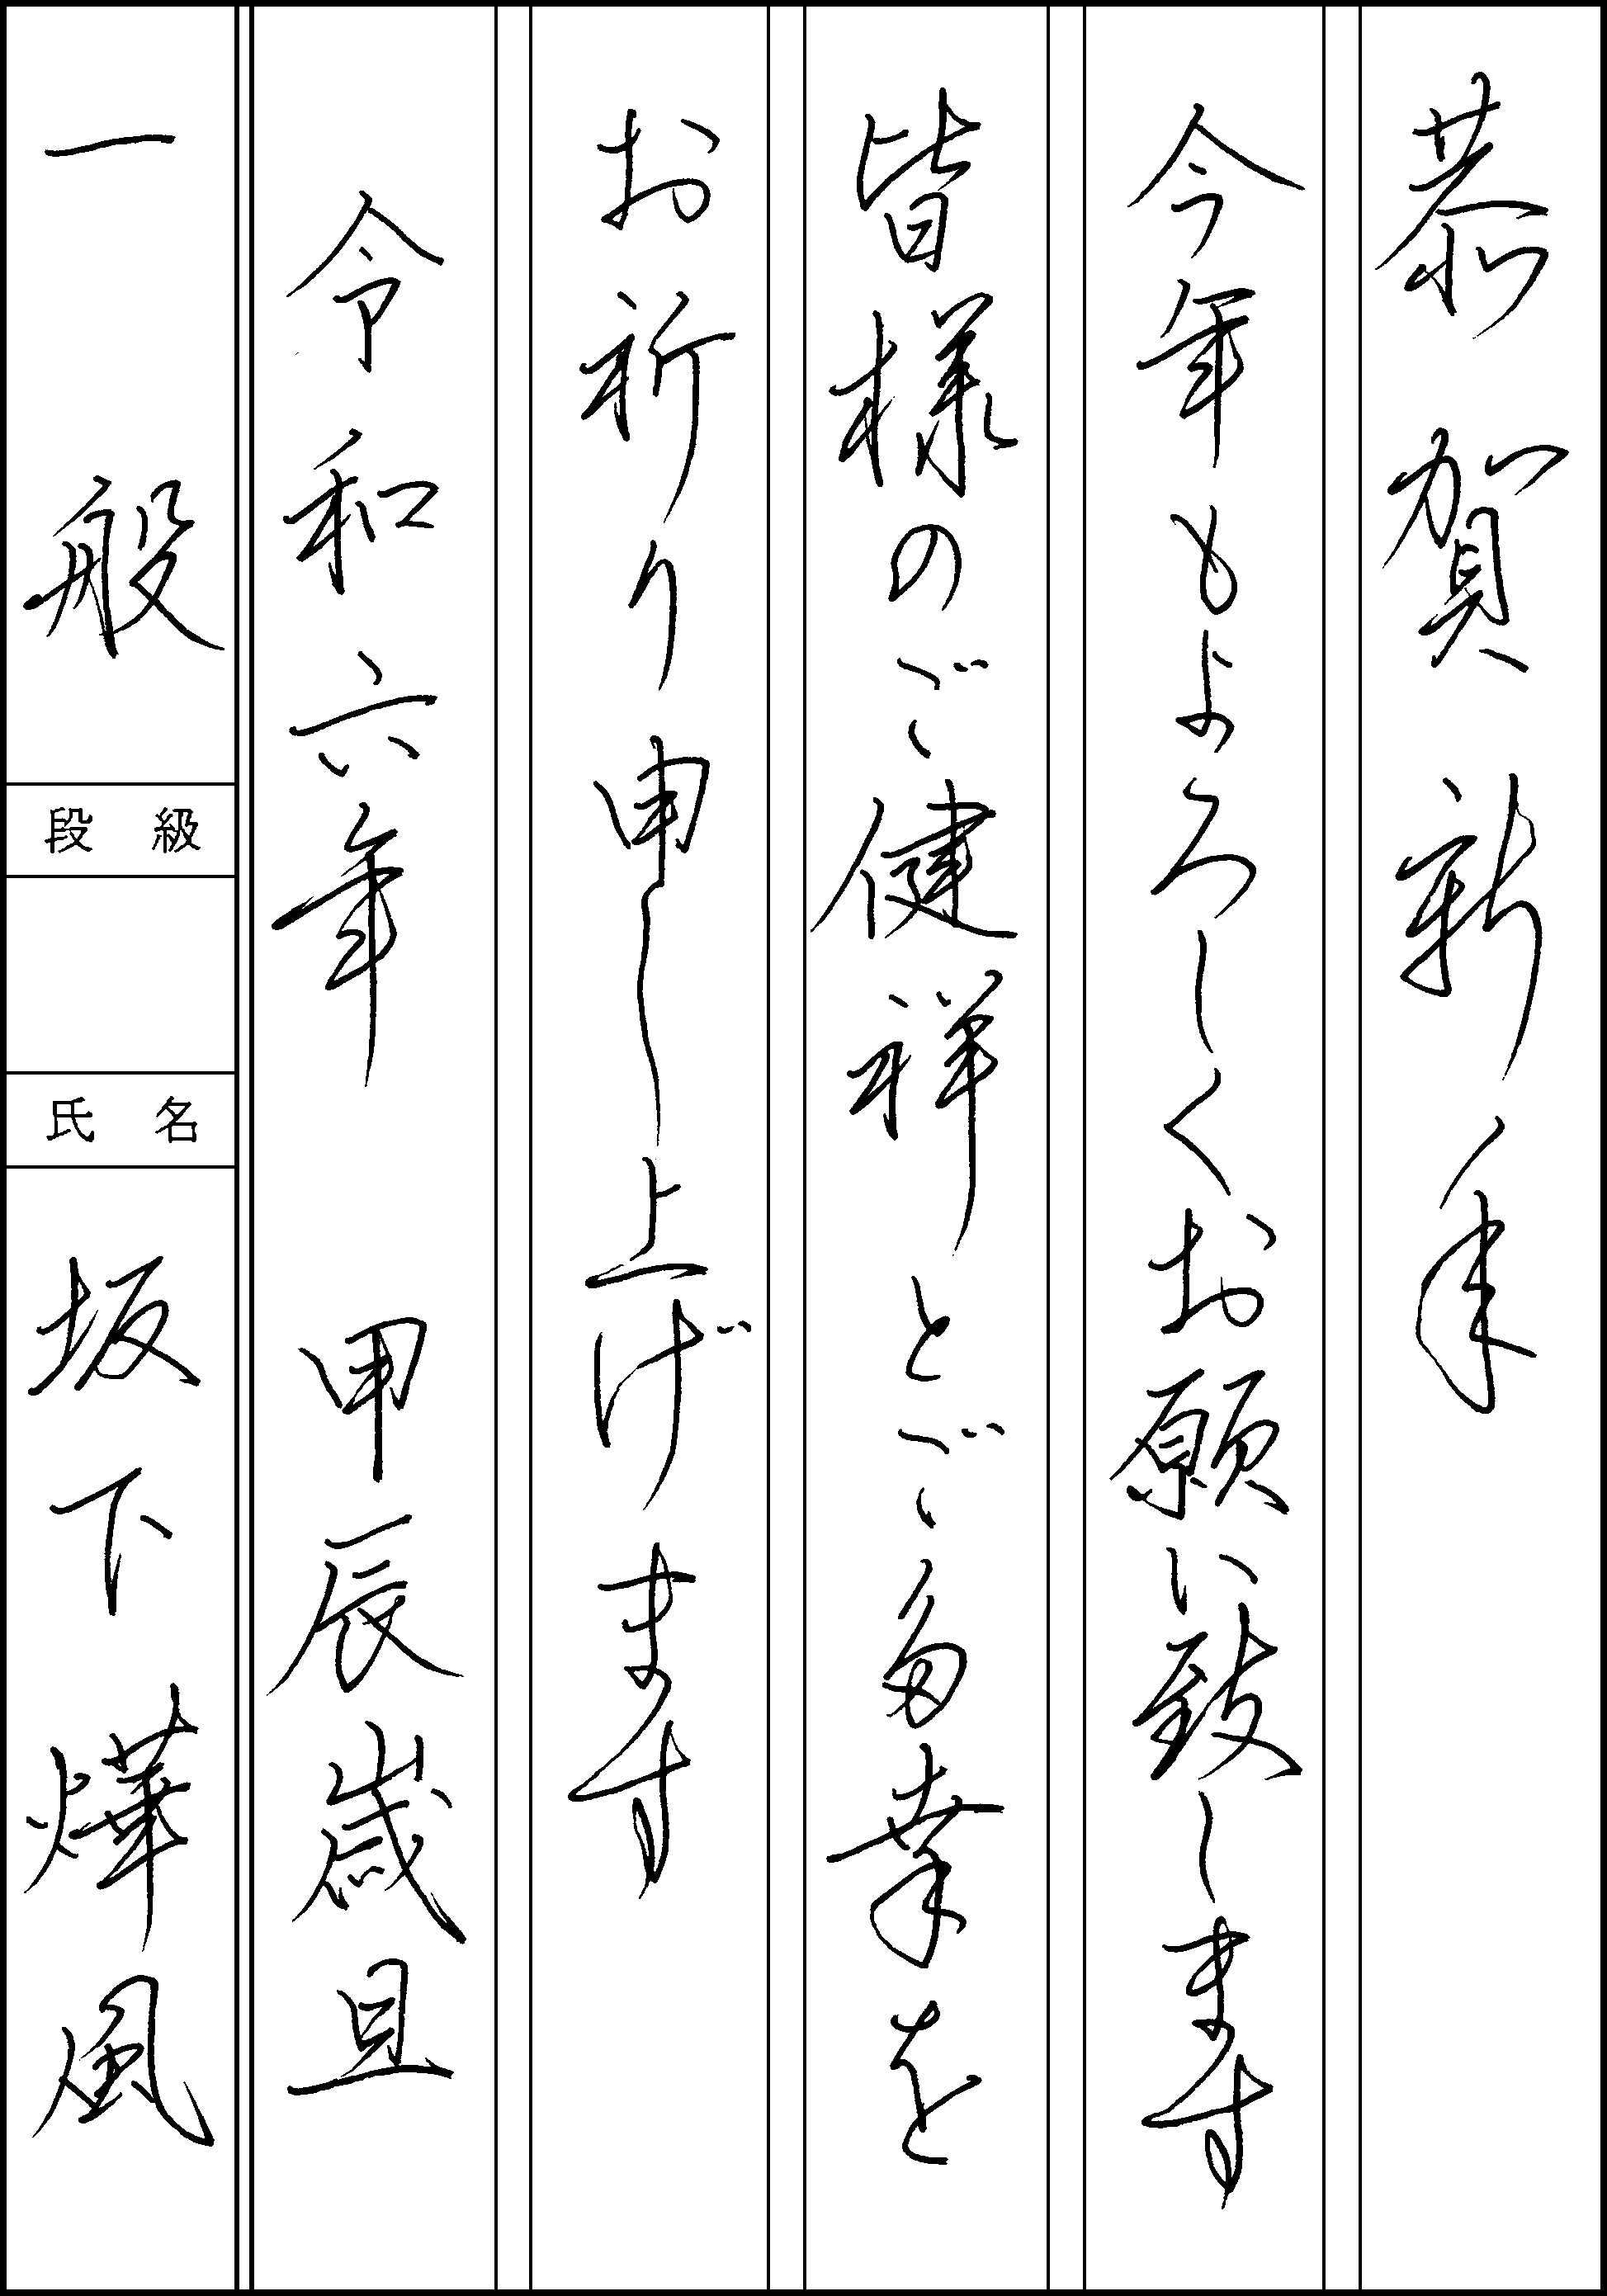 恭賀新年
今年もよろしくお願い致します
皆様のご健祥とご多幸を
お祈り申し上げます
令和六年 甲辰歳旦
一般
段級
氏名
坂下燁風